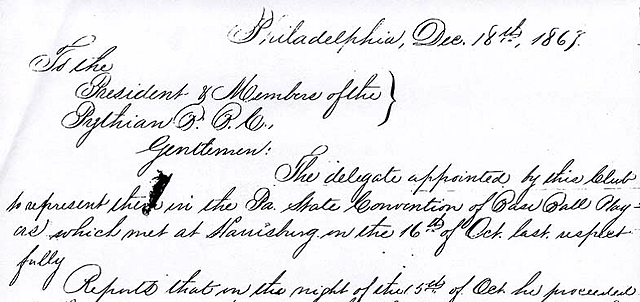 Philadelphia, Dec. 18th, 1867.
To the
President & Members of the
Pythian B. B. C.,
Gentlemen:
The delegate appointed by this Club
to represent them in the Pa. State Convention of Base Ball Play-
ers which met at Harrisburg in the 16th of Oct. last, respect-
fully
Reports that in the night of the 15th of Oct. he proceeded